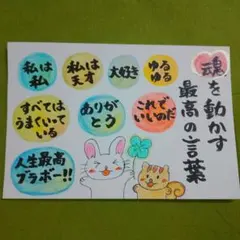 魂を動かす
最高の言葉
私は
私
私は
天才
大好き
ゆる
ゆる
すべては
うまくいって
いる
ありが
とう
これで
いいのだ
人生最高
ブラボー!!